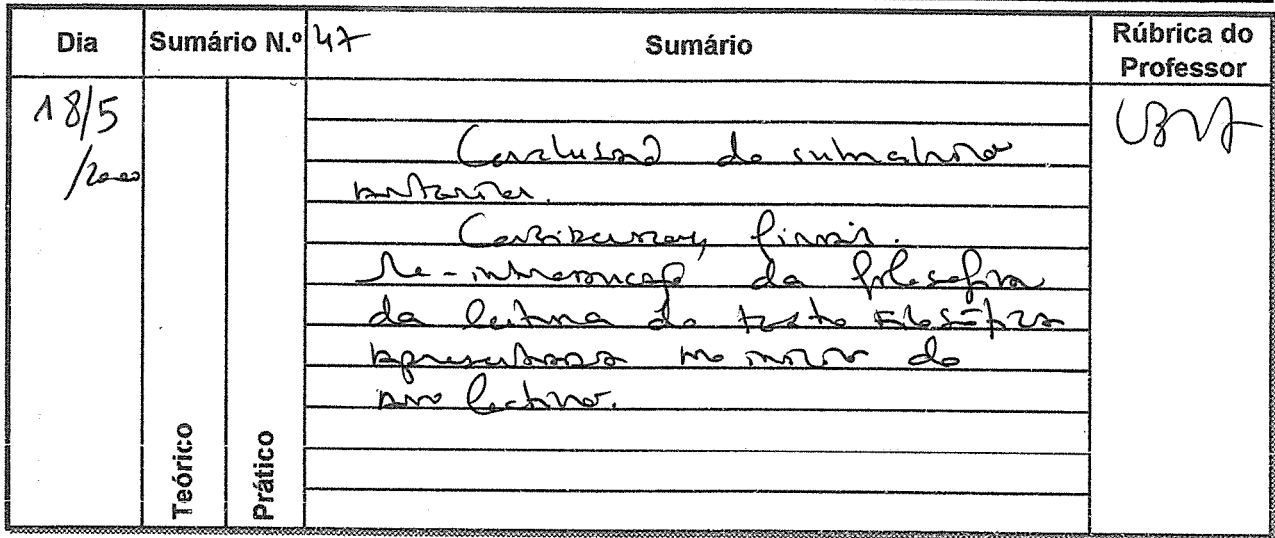 Dia Sumário N.º 47 Sumário Rúbrica do Professor
18/5
/2000
Conclusão do submódulo
anterior.
Considerações finais.
Re-introdução da filosofia
da leitura do texto filosófico
apresentada no início do
ano lectivo.
Teórico
Prático